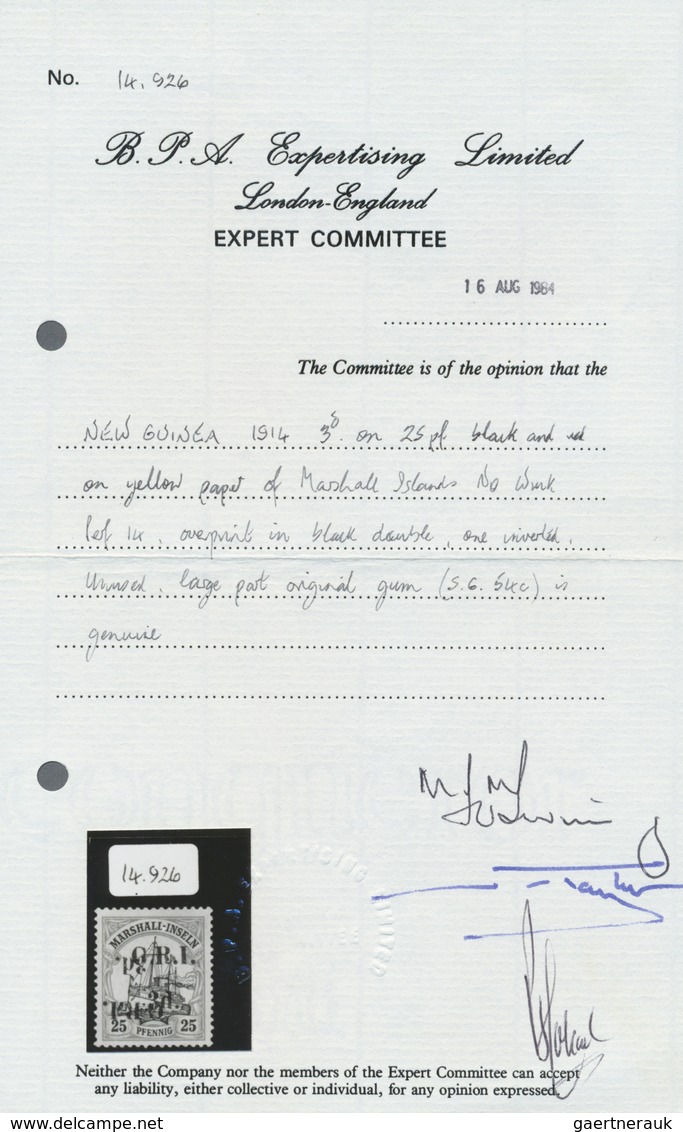 No. 14.926
B.P.A. Expertising Limited
London-England
EXPERT COMMITTEE
16 AUG 1984
The Committee is of the opinion that the
NEW GUINEA 1914 3d. on 25 pf black and red
on yellow paper of Marshall Islands No Wmk
Perf 14, overprint in black double, one inverted,
unused, large part original gum (S.G. 54c) is
genuine
14.926
MARSHALL-INSELN
G.R.I.
3d.
25 PFENNIG 25
Neither the Company nor the members of the Expert Committee can accept
any liability, either collective or individual, for any opinion expressed.
www.delcampe.net
gaertnerauk